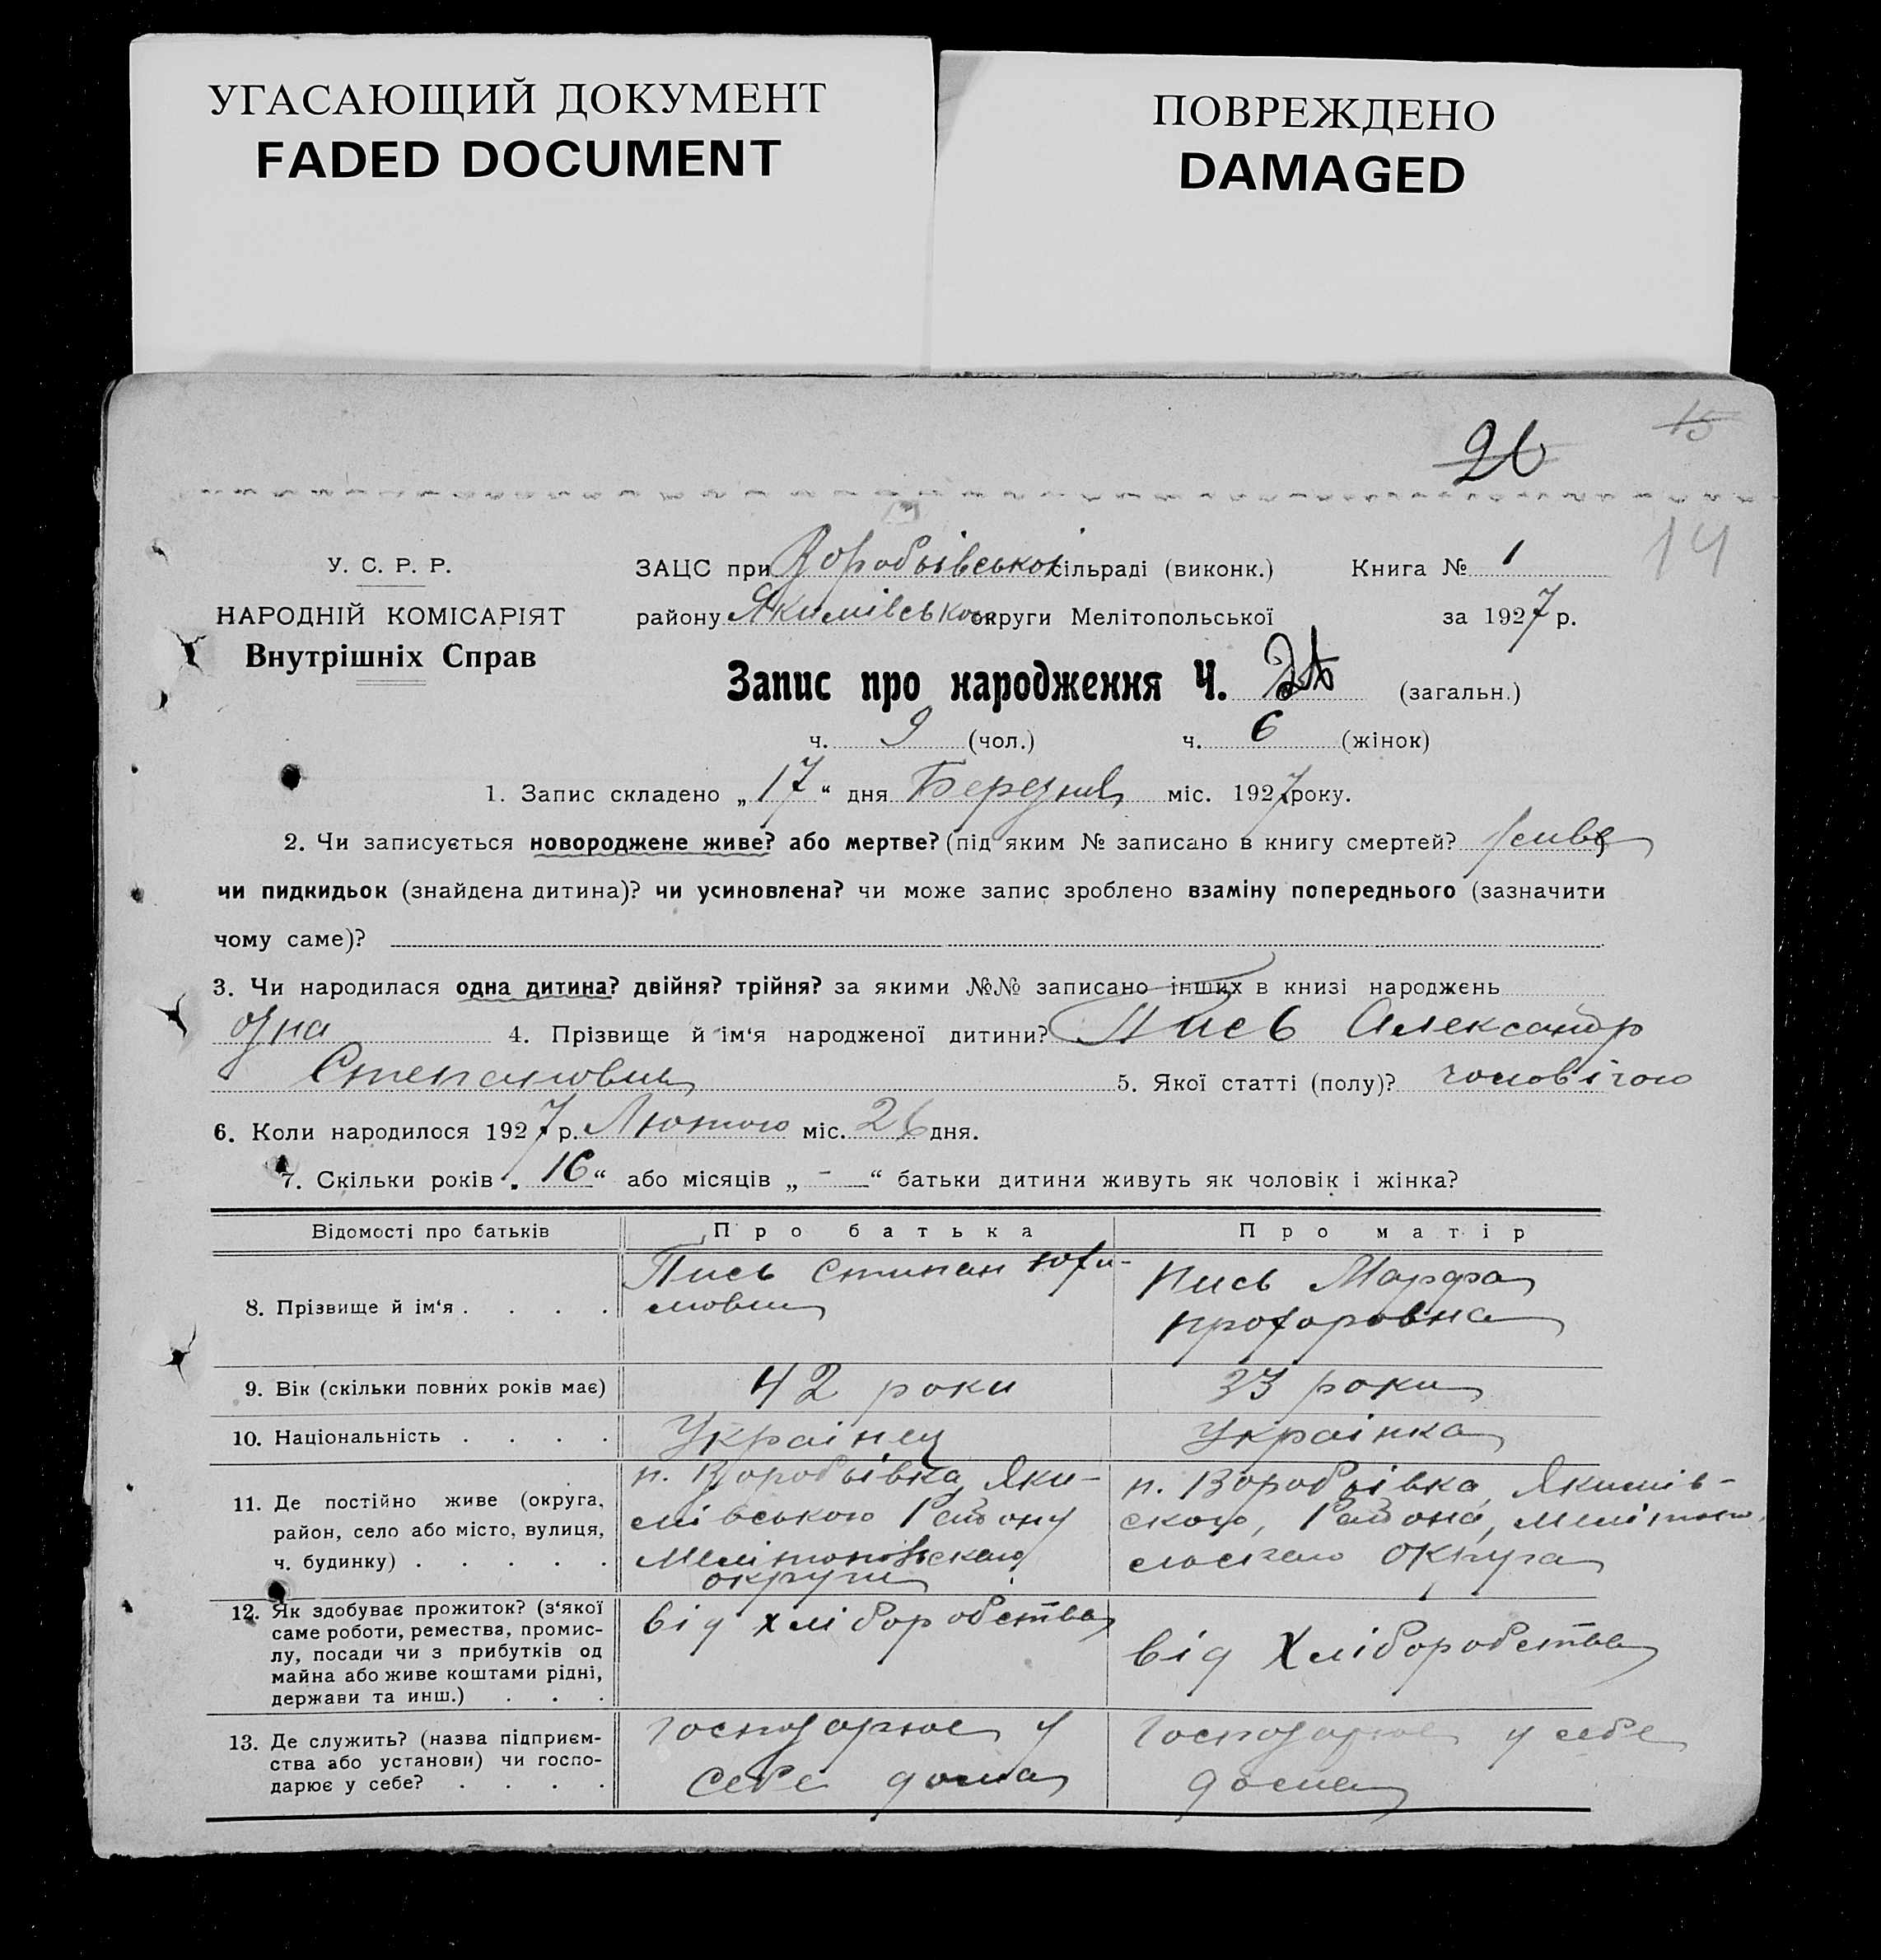 УГАСАЮЩИЙ ДОКУМЕНТ
FADED DOCUMENT
ПОВРЕЖДЕНО
DAMAGED
15
26
14
У. С. Р. Р.
НАРОДНІЙ КОМІСАРІЯТ
Внутрішніх Справ
ЗАЦС при Воробьівської сільраді (виконк.) Книга № 1
району Якимівського округи Мелітопольської за 1927 р.
Запис про народження Ч. (загальн.)
ч. 9 (чол.) ч. 6 (жінок)
1. Запис складено „17“ дня Березня міс. 1927 року.
2. Чи записується новороджене живе? або мертве? (під яким № записано в книгу смертей? живе
чи пидкидьок (знайдена дитина)? чи усиновлена? чи може запис зроблено взаміну попереднього (зазначити
чому саме)?
3. Чи народилася одна дитина? двійня? трійня? за якими №№ записано інших в книзі народжень
одна 4. Прізвище й ім‘я народженої дитини? Пись Александр
Степанович 5. Якої статті (полу)? чоловічого
6. Коли народилося 1927 р. Лютого міс. 26 дня.
7. Скільки років „16“ або місяців „-“ батьки дитини живуть як чоловік і жінка?
Відомості про батьків Про батька Про матір
8. Прізвище й ім‘я . . . .
Пись Стипан Юфи-
мович
Пись Марфа
Прохоровна
9. Вік (скільки повних років має) 42 роки 33 роки
10. Національність . . . . Українец Українка
11. Де постійно живе (округа,
район, село або місто, вулиця,
ч. будинку) . . . . .
п. Воробьівка, Яки-
мівського Району
Мелітопольского
округи
п. Воробьівка, Якимів-
ского, Района,
округа
12. Як здобуває прожиток? (з‘якої
саме роботи, ремества, промис-
лу, посади чи з прибутків од
майна або живе коштами рідні,
держави та инш.) . . .
від хліборобства
від Хліборобства
13. Де служить? (назва підприєм-
ства або установи) чи госпо-
дарює у себе? . . . .
господарює у
себе дома
господарює у себе
дома